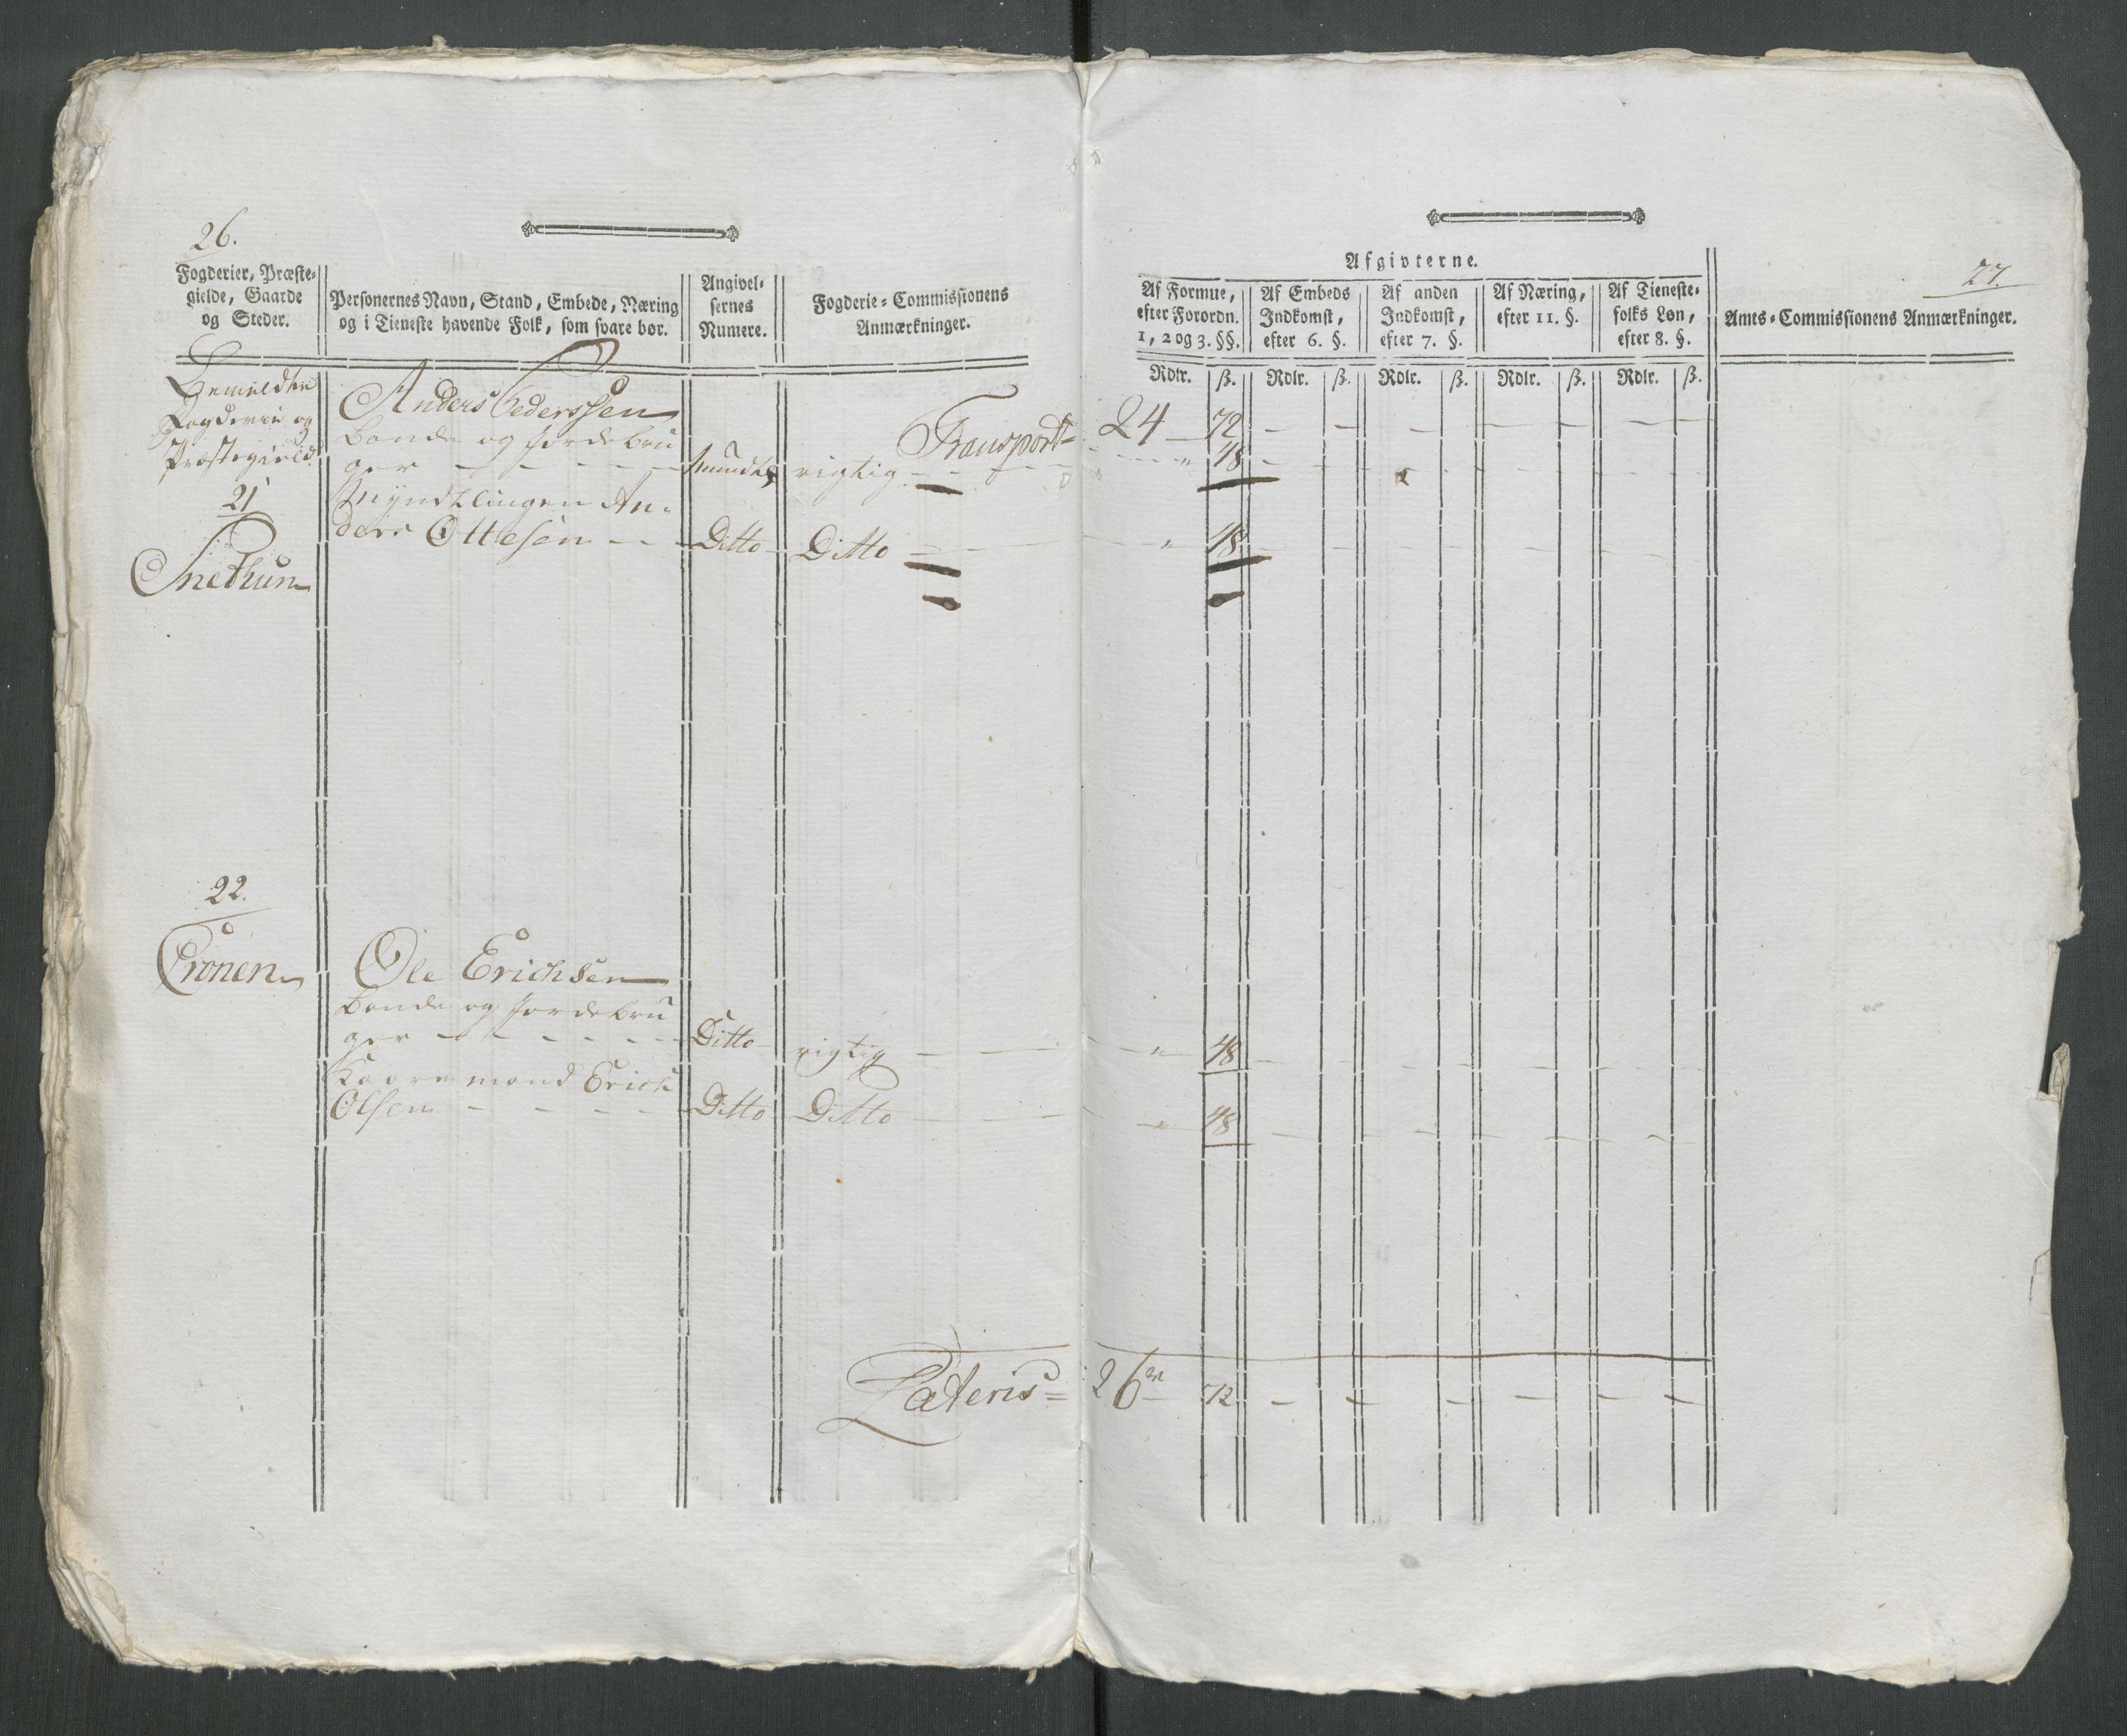 26.
Fogderier, Præste-
gielde, Gaarde
og Steder.
Personernes Navn, Stand, Embede, Næring
og i Tieneste havende Folk, som svare bør.
Angivel-
sernes
Numere.
Fogderie-Commissionens
Anmærkninger.
Bemeldte
Fogderie og
Præstegield
21
Snethun
Anders Pedersen
bonde og jordebru
ger - - - - - mundtl. rigtig -
Myndtlingen An-
ders Ottesen - - Ditto Ditto
22.
Cronen
Ole Erichsen
bonde og jordebru
ger - - - - - Ditto rigtig - -
Kaaremand Erich
Olsen - - - - Ditto Ditto - -
Transport
Lateris
27.
Afgivterne.
Af Formue,
efter Forordn.
1, 2 og 3. §§.
Af Embeds
Indkomst,
efter 6. §.
Af anden
Indkomst,
efter 7. §.
Af Næring,
efter 11. §.
Af Tieneste-
folks Løn,
efter 8. §.
Amts-Commissionens Anmærkninger.
Rdlr. ß. Rdlr. ß. Rdlr. ß. Rdlr. ß. Rdlr. ß.
24 72 - - - - - - - -
" 48 - - - - - - - -
" 48 - - - - - - - -
" 48 - - - - - - - -
" 48 - - - - - - - -
26 72 - - - - - - -